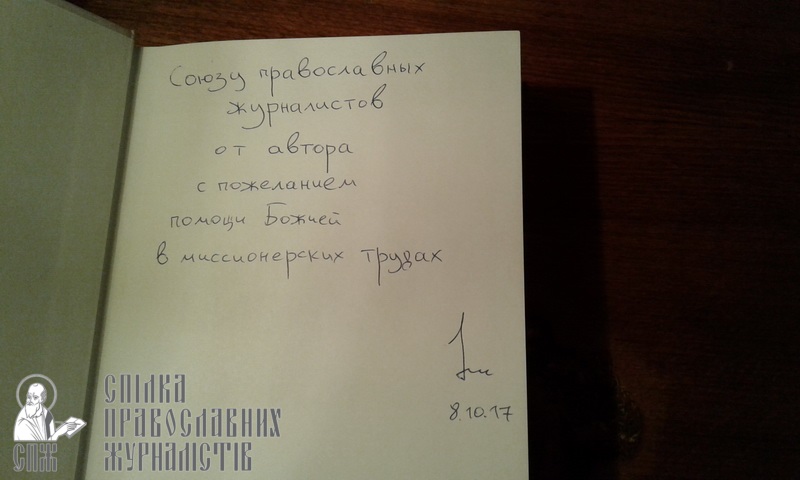 Союзу православных
журналистов
от автора
с пожеланием
помощи Божией
в миссионерских трудах
8.10.17
СПІЛКА
ПРАВОСЛАВНИХ
ЖУРНАЛІСТІВ
СПЖ